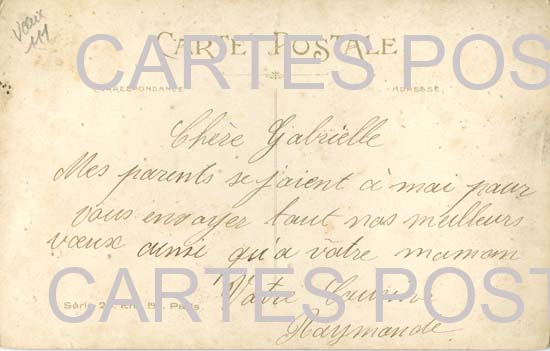 Vœux
111
CARTE POSTALE
CARTES POST
CORRESPONDANCE
ADRESSE
Chère Gabrielle
Mes parents se joient à moi pour
vous envoyer tout nos meilleurs
vœux ainsi qu'a vôtre maman
CARTES POST
Votre Cousine
Série Paris
Raymonde